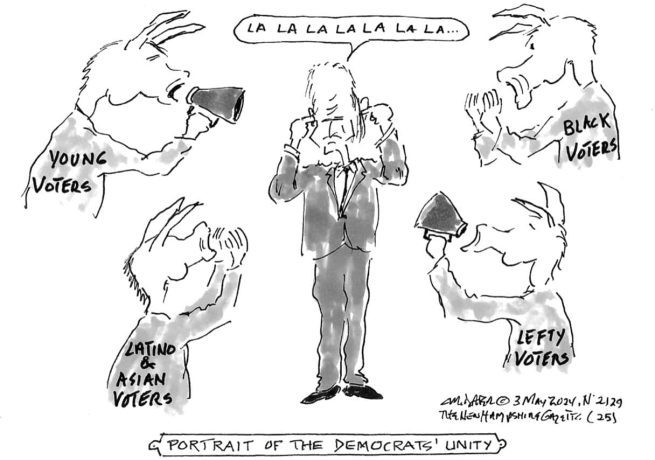 LA LA LA LA LA LA LA...
YOUNG
VOTERS
BLACK
VOTERS
LATINO
&
ASIAN
VOTERS
LEFTY
VOTERS
© 3 MAY 2024, Nº 2129
THE NEW HAMPSHIRE GAZETTE. (25)
PORTRAIT OF THE DEMOCRATS' UNITY